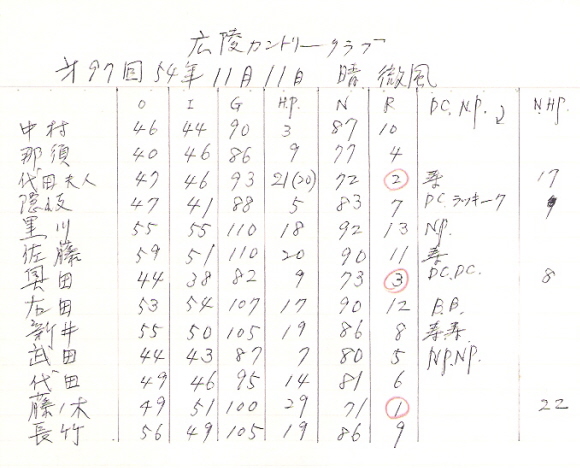 広陵カントリークラブ
才97回 54年 11月11日 晴 微風
O I G H.P. N R D.C. N.P. N.HP.
中村 46 44 90 3 87 10
那須 40 46 86 9 77 4
代田夫人 47 46 93 21(20) 72 2 寿 17
隠岐 47 41 88 5 83 7 D.C. ラッキー7
里川 55 55 110 18 92 13 N.P.
佐藤 59 51 110 20 90 11 寿
奥田 44 38 82 9 73 3 D.C. D.C. 8
右田 53 54 107 17 90 12 B.B.
新井 55 50 105 19 86 8 寿.寿.
武田 44 43 87 7 80 5 N.P. N.P.
代田 49 46 95 14 81 6
藤ノ木 49 51 100 29 71 1 22
長竹 56 49 105 19 86 9